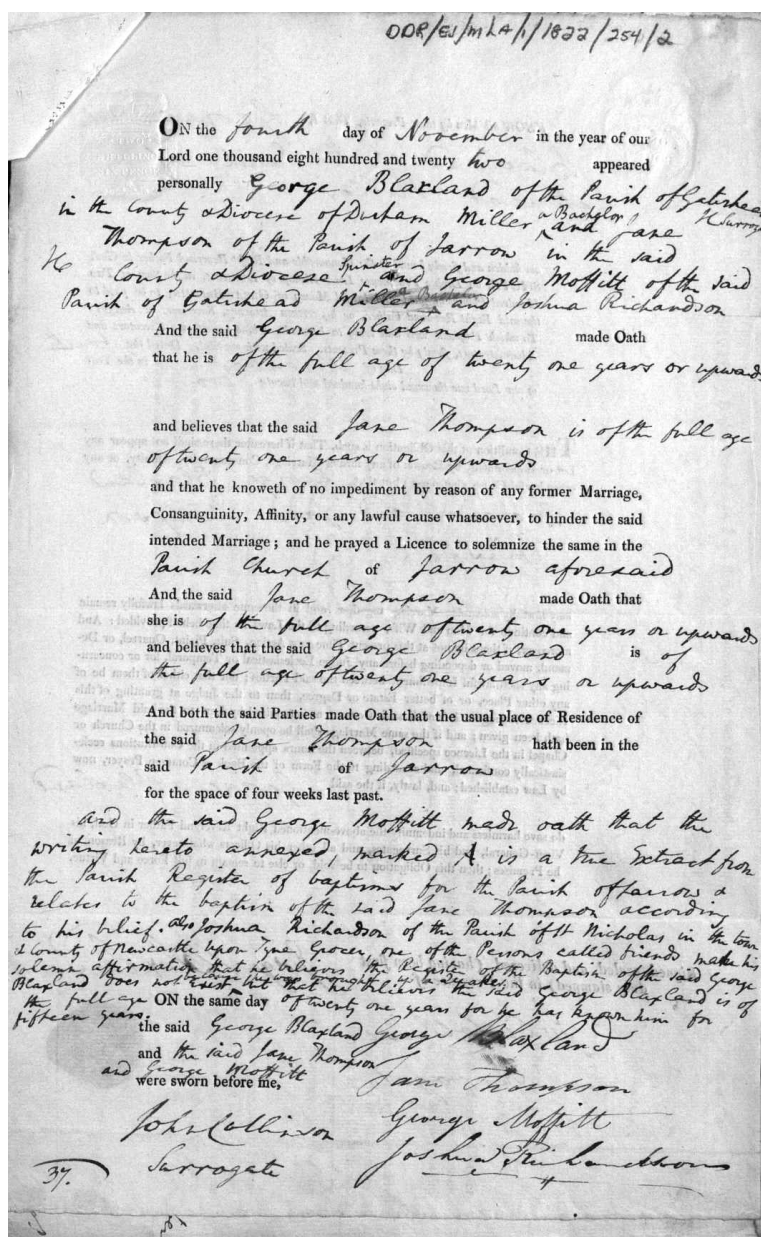 DDR/EJ/MLA/1/1822/254/2
ON the fourth day of November in the year of our
Lord one thousand eight hundred and twenty two appeared
personally George Blaxland of the Parish of Gateshead
in the County & Diocese of Durham Miller a Bachelor and Jane
Thompson of the Parish of Jarrow in the said
County & Diocese Spinster and George Moffitt of the said
Parish of Gateshead Miller and Joshua Richardson
And the said George Blaxland made Oath
that he is of the full age of twenty one years or upwards
and believes that the said Jane Thompson is of the full age
of twenty one years or upwards
and that he knoweth of no impediment by reason of any former Marriage,
Consanguinity, Affinity, or any lawful cause whatsoever, to hinder the said
intended Marriage; and he prayed a Licence to solemnize the same in the
Parish Church of Jarrow aforesaid
And the said Jane Thompson made Oath that
she is of the full age of twenty one years or upwards
and believes that the said George Blaxland is of
the full age of twenty one years or upwards
And both the said Parties made Oath that the usual place of Residence of
the said Jane Thompson hath been in the
said Parish of Jarrow
for the space of four weeks last past.
and the said George Moffitt made oath that the
writing hereto annexed, marked A is a true Extract from
the Parish Register of baptisms for the Parish of Jarrow &
relates to the baptism of the said Jane Thompson according
to his belief. also Joshua Richardson of the Parish of St Nicholas in the town
& County of Newcastle upon Tyne Grocer, one of the Persons called friends make his
solemn affirmation that he believes the Register of the Baptism of the said George
Blaxland does not exist he having been brought up a Quaker but that he believes the said George Blaxland is of
the full age of twenty one years for he has known him for
fifteen years.
ON the same day
the said George Blaxland George Blaxland
and the said Jane Thompson
and George Moffitt
were sworn before me, Jane Thompson
John Collinson George Moffitt
Surrogate Joshua Richardson
37.